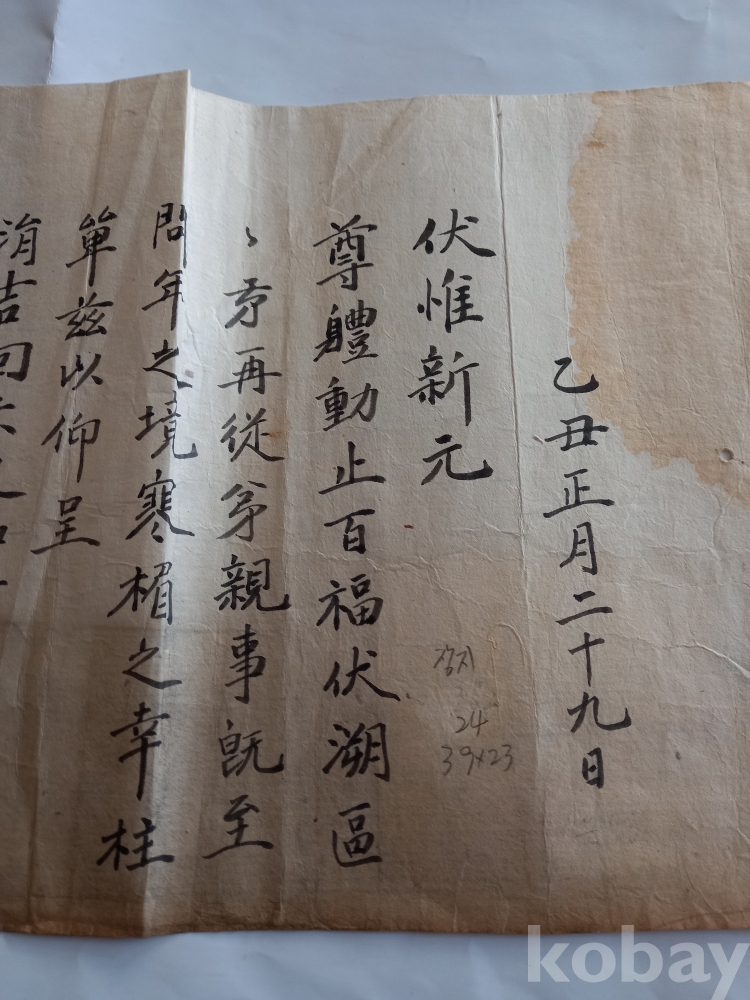 乙丑正月二十九日
伏惟新元
尊體動止百福伏溯區
〻弟再從弟親事旣至
問年之境寒楣之幸柱
單玆以仰呈
涓吉回示之
장지
24
39×23
kobay